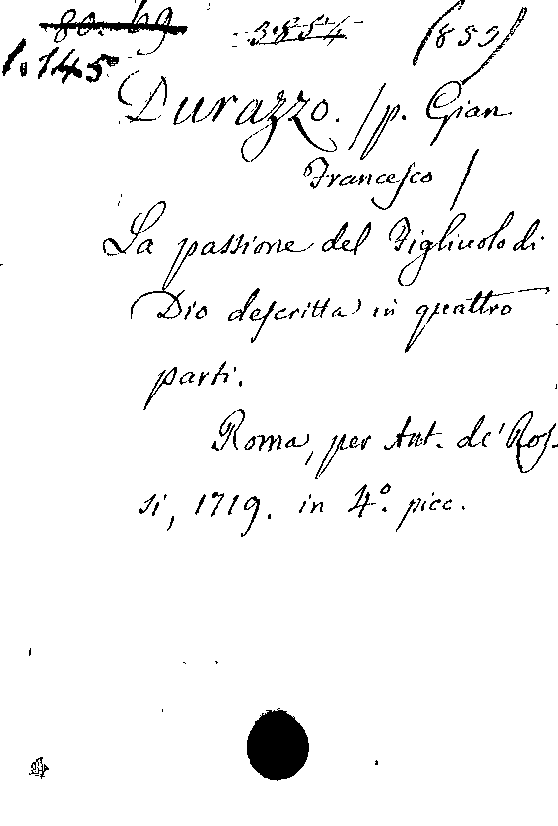 80. 69 3854 (859)
1.145
Durazzo. /p. Gian
Francesco /
La passione del Figliuolo di
Dio descritta in quattro
parti.
Roma, per Ant. de' Ros-
si, 1719. in 4º. picc.